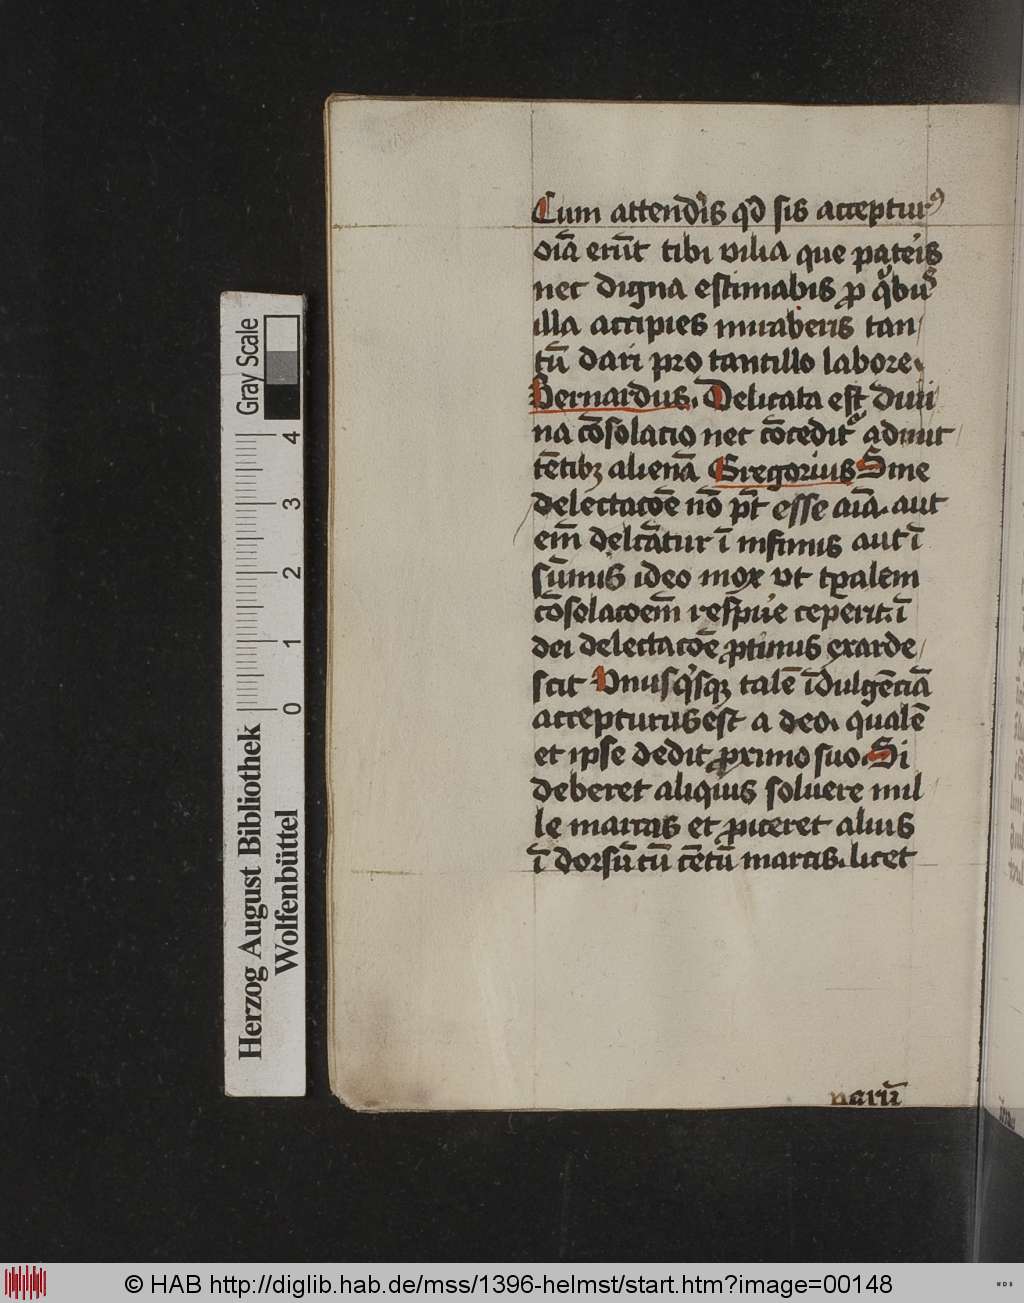 Cum attendis qd̄ sis acceptur⁹
oīa erūt tibi vilia que pateris
nec digna estimabis ꝓ qͥbus
illa accipies miraberis tan/
tū dari pro tantillo labore.
Bernardus. Delicata est diui
na cōsolacio nec cōceditᷣ admit
tētibꝫ alienā Gregorius Sine
delectacōe nō pt̄ esse aīa. aut
em̄ delcātur ī infimis aut ī
sūmis ideo mox vt tꝑalem
cōsolacoem̄ respuͥe ceperit. ī
dei delectacōe ꝓtinus exarde/
scit Vnusqͥsqꝫ talē īdulgēciā
accepturus est a deo. qualē
et ipse dedit ꝓximo suo. Si
deberet aliquis soluere mil
le marcas et ꝓiceret alius
ī dorsū tū cētū marcis. licet
narū
Herzog August Bibliothek
Wolfenbüttel
0 1 2 3 4
Gray Scale
© HAB http://diglib.hab.de/mss/1396-helmst/start.htm?image=00148
WDB